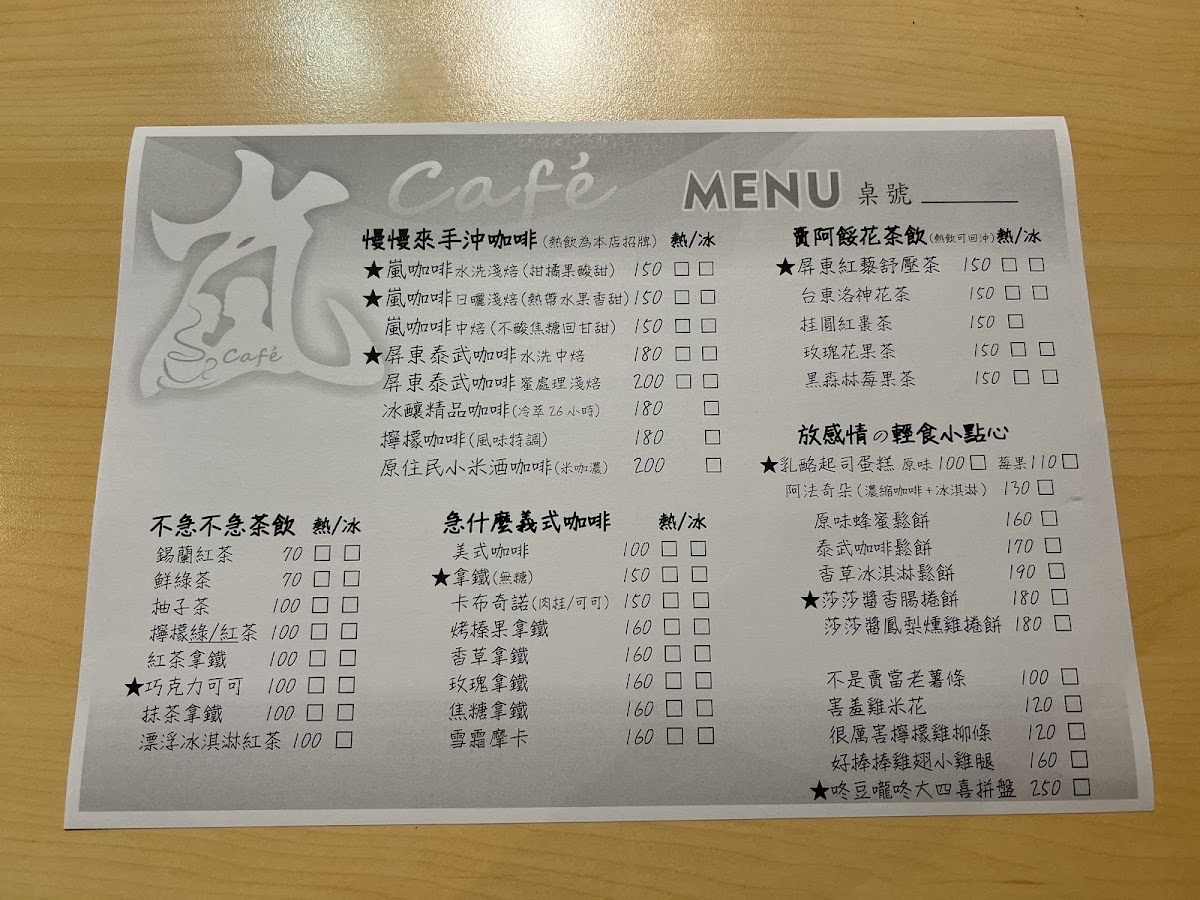 嵐
Café
Café
MENU 桌號
慢慢來手沖咖啡(熱飲為本店招牌) 熱/冰
★嵐咖啡水洗淺焙(柑橘果酸甜) 150 □ □
★嵐咖啡日曬淺焙(熱帶水果香甜) 150 □ □
嵐咖啡中焙(不酸焦糖回甘甜) 150 □ □
★屏東泰武咖啡水洗中焙 180 □ □
屏東泰武咖啡蜜處理淺焙 200 □ □
冰釀精品咖啡(冷萃26小時) 180 □
檸檬咖啡(風味特調) 180 □
原住民小米酒咖啡(米咖濃) 200 □
賣阿餒花茶飲(熱飲可回沖) 熱/冰
★屏東紅藜舒壓茶 150 □ □
台東洛神花茶 150 □ □
桂圓紅棗茶 150 □
玫瑰花果茶 150 □ □
黑森林莓果茶 150 □ □
放感情の輕食小點心
★乳酪起司蛋糕 原味100□ 莓果110□
阿法奇朵(濃縮咖啡+冰淇淋) 130 □
原味蜂蜜鬆餅 160 □
泰武咖啡鬆餅 170 □
香草冰淇淋鬆餅 190 □
★莎莎醬香腸捲餅 180 □
莎莎醬鳳梨燻雞捲餅 180 □
不是賣當老薯條 100 □
害羞雞米花 120 □
很厲害檸檬雞柳條 120 □
好棒棒雞翅小雞腿 160 □
★咚豆嚨咚大四喜拼盤 250 □
不急不急茶飲 熱/冰
錫蘭紅茶 70 □ □
鮮綠茶 70 □ □
柚子茶 100 □ □
檸檬綠/紅茶 100 □ □
紅茶拿鐵 100 □ □
★巧克力可可 100 □ □
抹茶拿鐵 100 □ □
漂浮冰淇淋紅茶 100 □
急什麼義式咖啡 熱/冰
美式咖啡 100 □ □
★拿鐵(無糖) 150 □ □
卡布奇諾(肉桂/可可) 150 □ □
烤榛果拿鐵 160 □ □
香草拿鐵 160 □ □
玫瑰拿鐵 160 □ □
焦糖拿鐵 160 □ □
雪霜摩卡 160 □ □